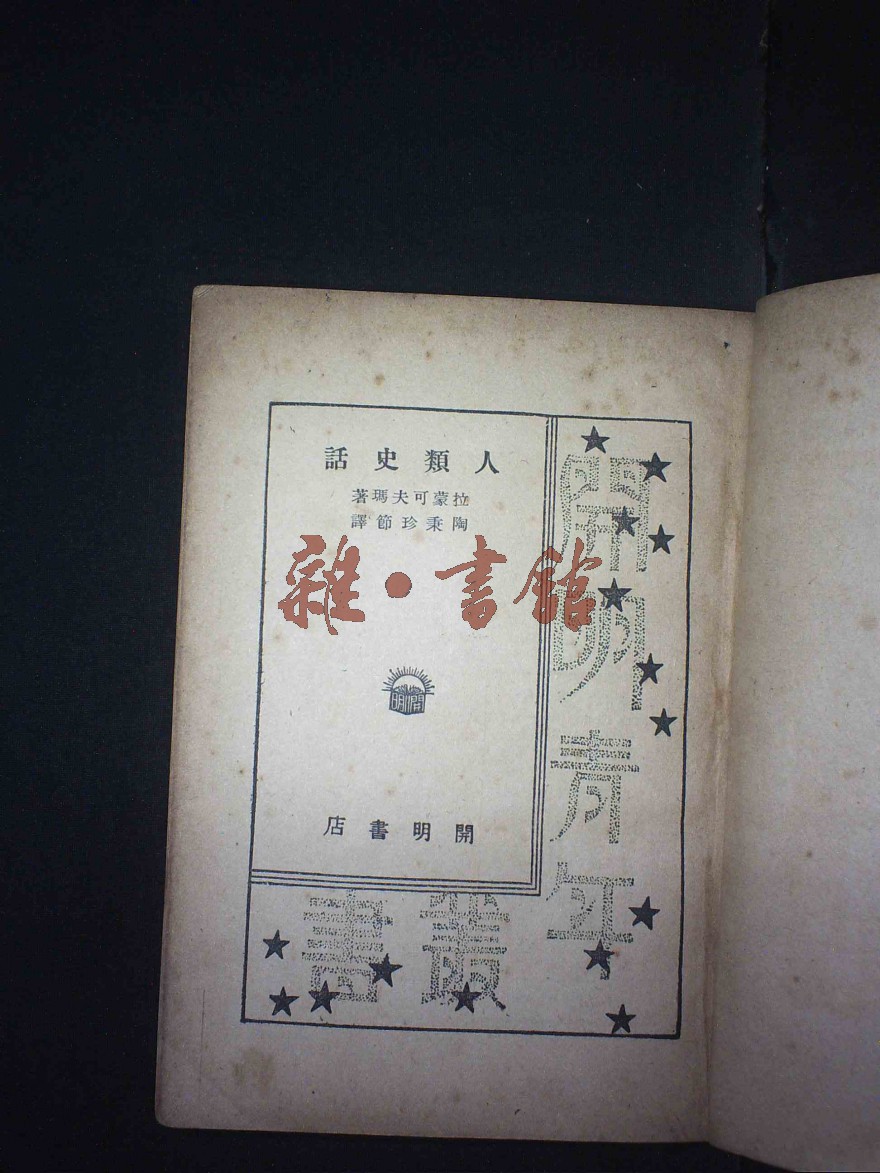 人類史話
拉蒙可夫瑪著
陶秉珍節譯
雜·書館
開明
開明書店
開明青年
叢書